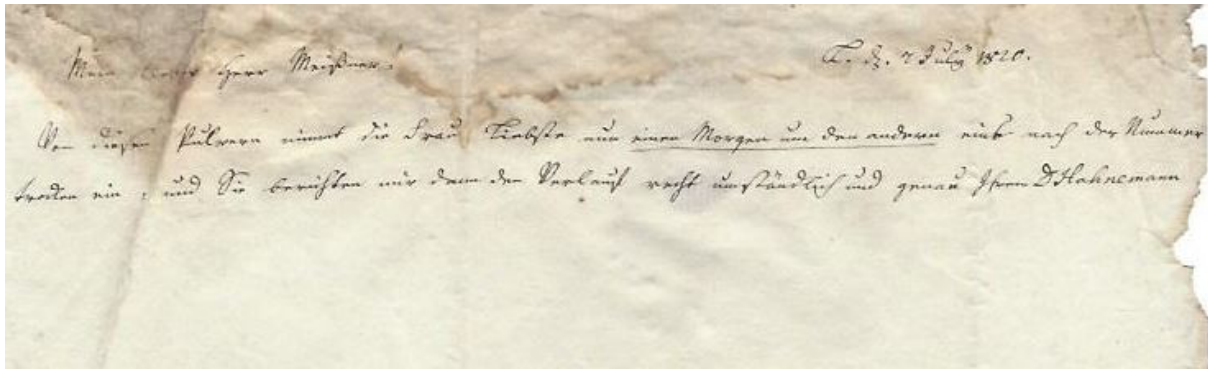 Mein lieber Herr Meißner!
L. d. 7 July 1820.
Von diesen Pulvern nimmt die Frau Liebste nun einen Morgen um den andern eins nach der Nummer
trocken ein, und Sie berichten mir dann den Verlauf recht umständlich und genau Ihrem D Hahnemann